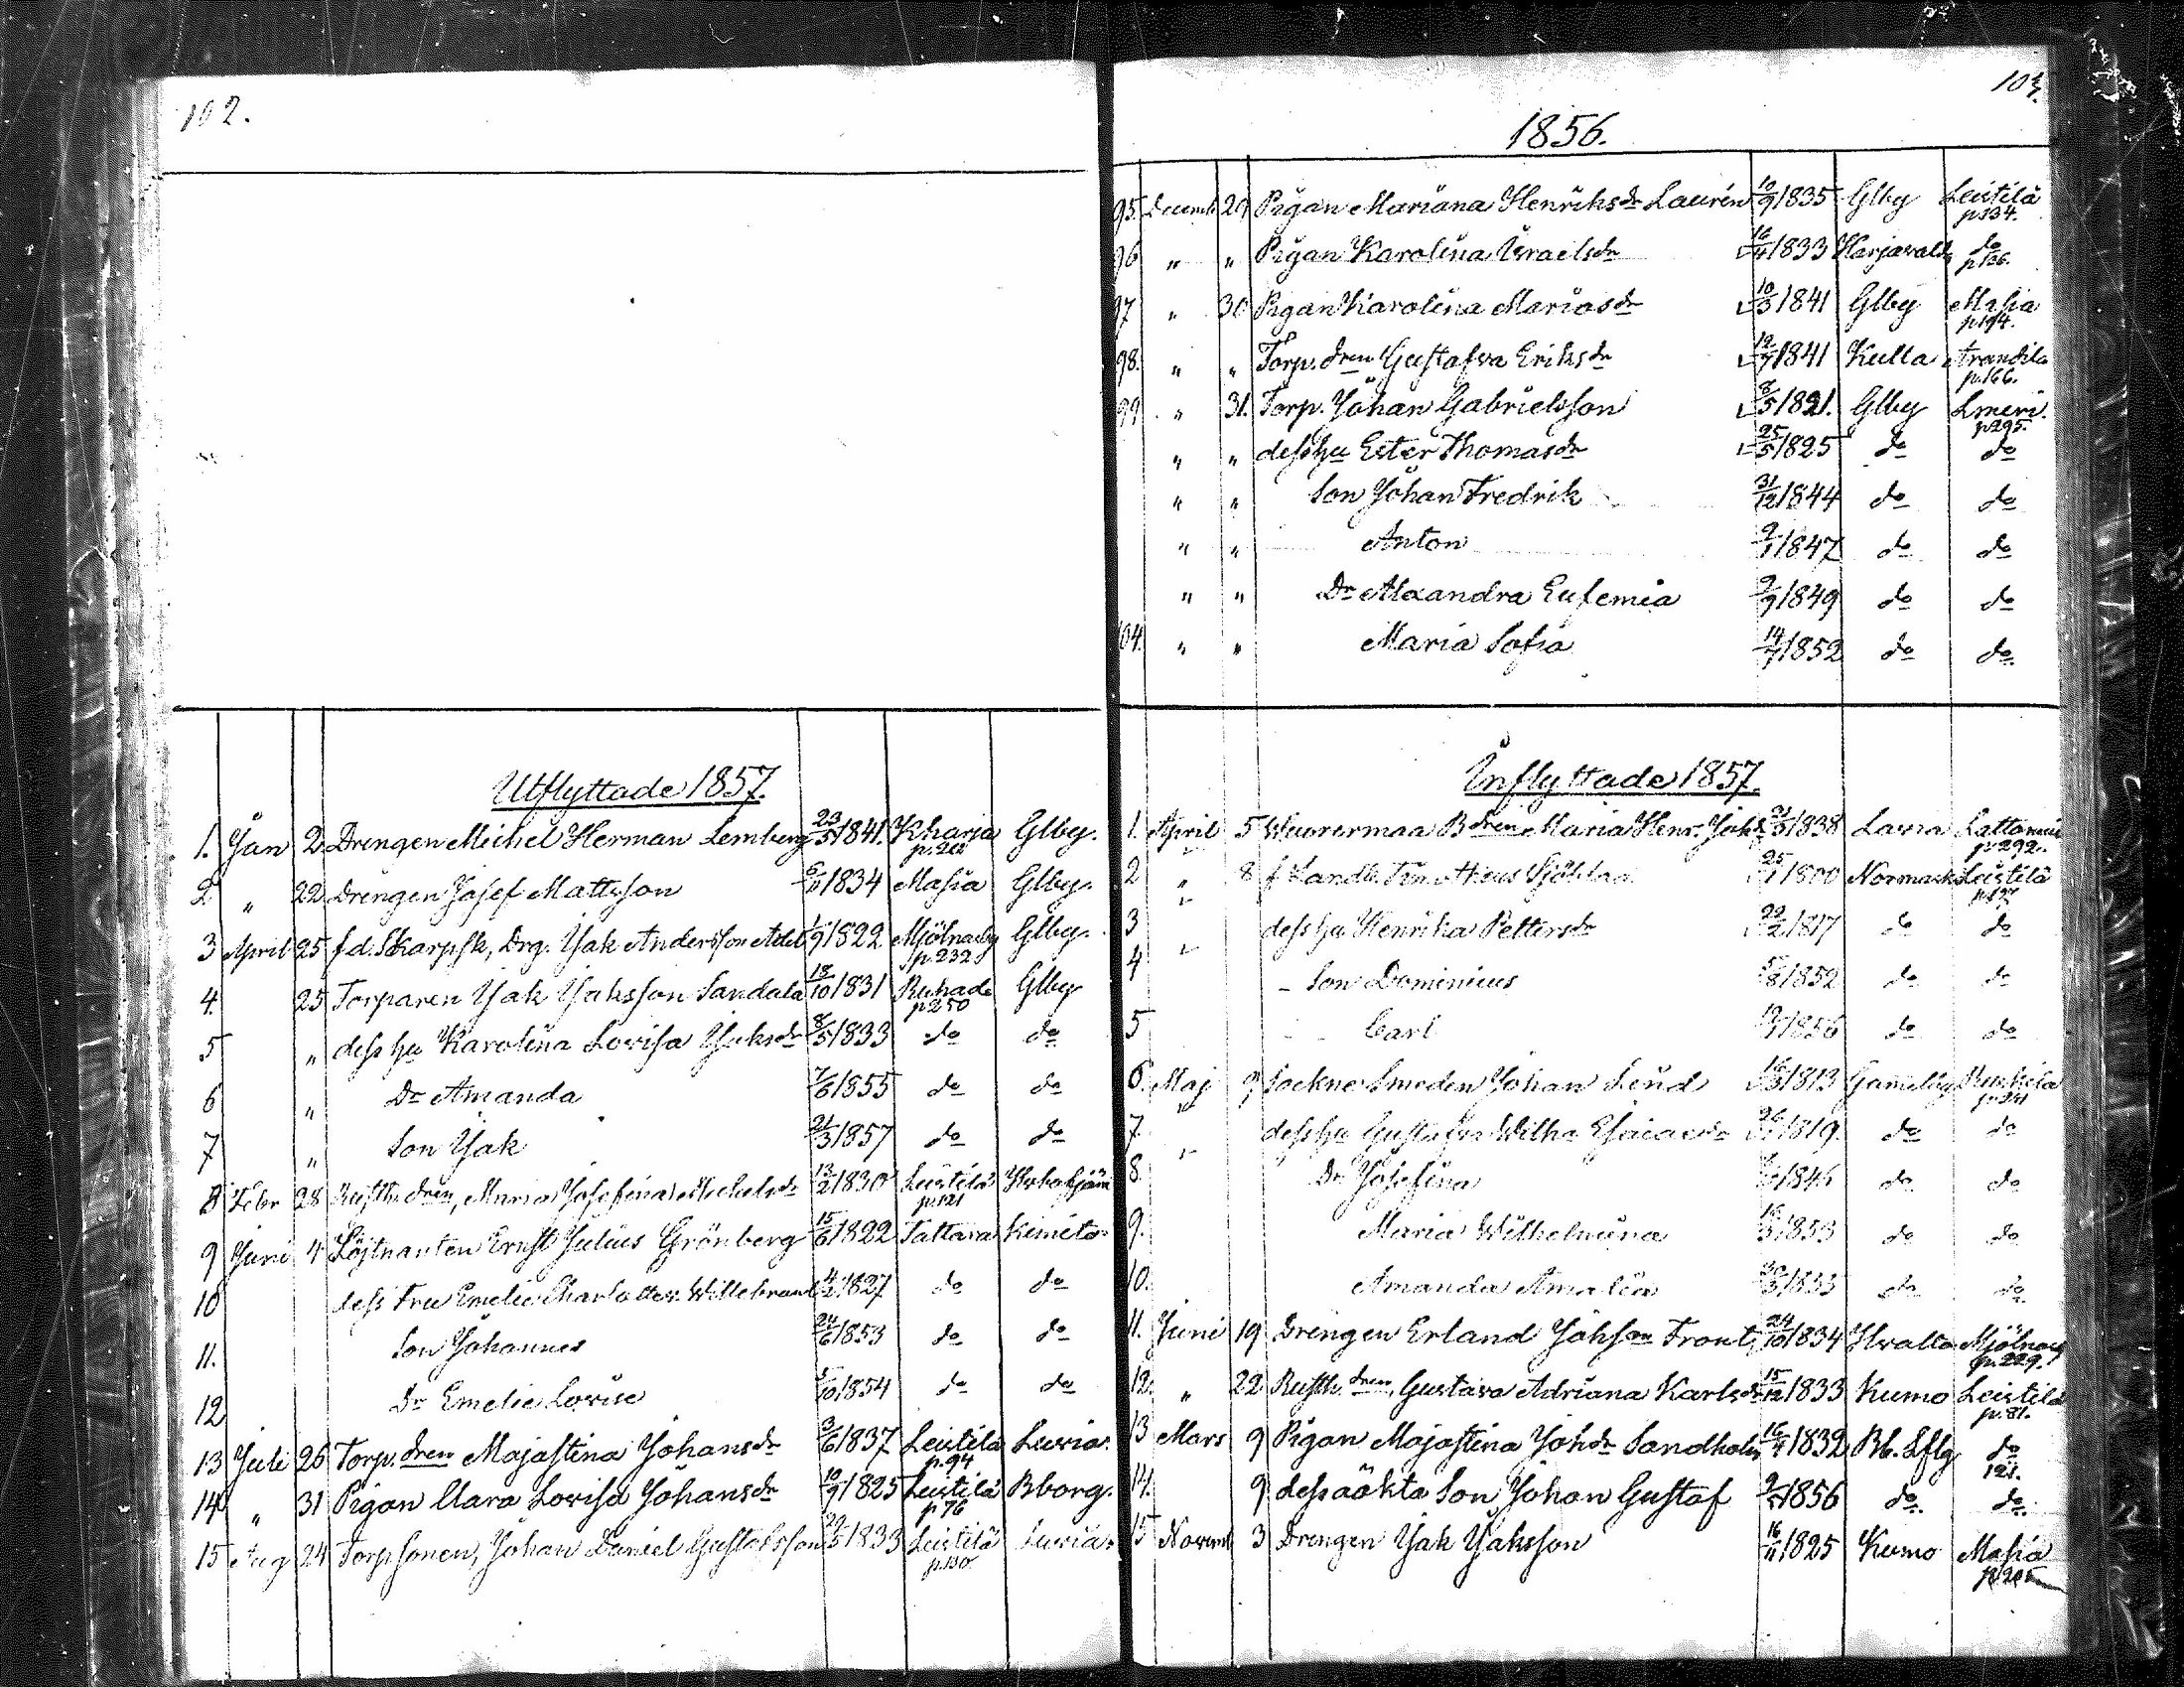 102.
Utflyttade 1857.
1. Jan 2 Drengen Michel Herman Lemberg 23/5 1841. Kharja p. 212 Glby.
2 " 22 Drengen Josef Mattsson 1834 Masia Glby.
3 April 25 f.d. Skarpsk, Drg. Jak Andersson 1/9 1822 Mjölnaby p. 232 Glby.
4. 25 Torparen Jak Jakssson Sandala 18/10 1831 Ruhade p 250 Glby
5 " dess hu Karolina Lovisa Jaksdr 8/5 1833 do do
6 " Dr Amanda 7/6 1855 do do
7 " Son Jak 21/3 1857 do do
8 Febr 28 Rusth. dren, Maria Josefina Michelsdr 13/2 1830 Leistilä p. 121
9 Juni 4 Löjtnanten Ernst Julius Grönberg 15/6 1822 Tattara Kimito
10 dess Fru Emelie Charlotta v. Willebrand 4/2 1827 do do
11. Son Johannes 24/6 1853 do do
12 Dr Emelie Lovise 5/10 1854 do do
13 Juli 26 Torp. dren Majastina Johansdr 3/6 1837 Leistilä p. 94 Luvia.
14 " 31 Pigan Clara Lovisa Johansdr 10/9 1825 Leistilä p 76 Bborg.
15 Aug 24 Torpsonen, Johan Daniel Gustafsson 29/5 1833 Leistilä p. 130 Luvia.
103.
1856.
95. Decemb 29 Pigan Mariana Henriksdr Laurén 10/9 1835 Glby Leistilä p 134.
96 " " Pigan Karolina Israelsdr 16/4 1833 Harjavalta do p. 126.
97 " 30 Pigan Karolina Mariasdr 10/3 1841 Glby Masia p 194.
98. " " Torp. dren Gustafva Eriksdr 12/7 1841 Kulla Arandila p. 166.
99 " 31. Torp. Johan Gabrielsson 8/5 1821. Glby Lmeri. p 295.
" " dess hu Ester Thomasdr 25/5 1825 do do
" " Son Johan Fredrik 31/12 1844 do do
" " Anton 9/1 1847 do do
" " Dr Alexandra Eufemia 9/9 1849 do do
104. " " Maria Sofia 14/7 1852 do do
Inflyttade 1857.
1. April 5 Wuorenmaa B dren Maria Henr. Johsdr 1838 Lavia p 292.
2 " 8 f Landb. Timotheus 25/1 1800 Normark Leistilä
3 dess hu Henrika Pettersdr 22/2 1817 do do
4 - Son Dominicus 1852 do do
5 Carl 1856 do do
6. Maj 9 Sockne Smeden Johan Lind 1813 Gamelby
7. dess hu Gustafva Wilha Esaiasdr 1819. do do
8. Dr Josefina do do
9. Maria Wilhelmina 1853 do do
10. Amanda Amalia do do
11. Juni 19 Drengen Erland Johsson Front 24/10 1834 Mjölnaby p. 229.
12. " 22 Rusth. dren, Gustava Adriana Karlsdr 15/12 1833 Kumo Leistilä p. 81.
13 Mars 9 Pigan Majastina Johdr Sandholm 16/4 1832 Bb. Lflg do 121.
14. 9 dess oäkta Son Johan Gustaf 1856 do do
15 Novemb 3 Drengen Jak Jaksson 16/11 1825 Kumo Masia